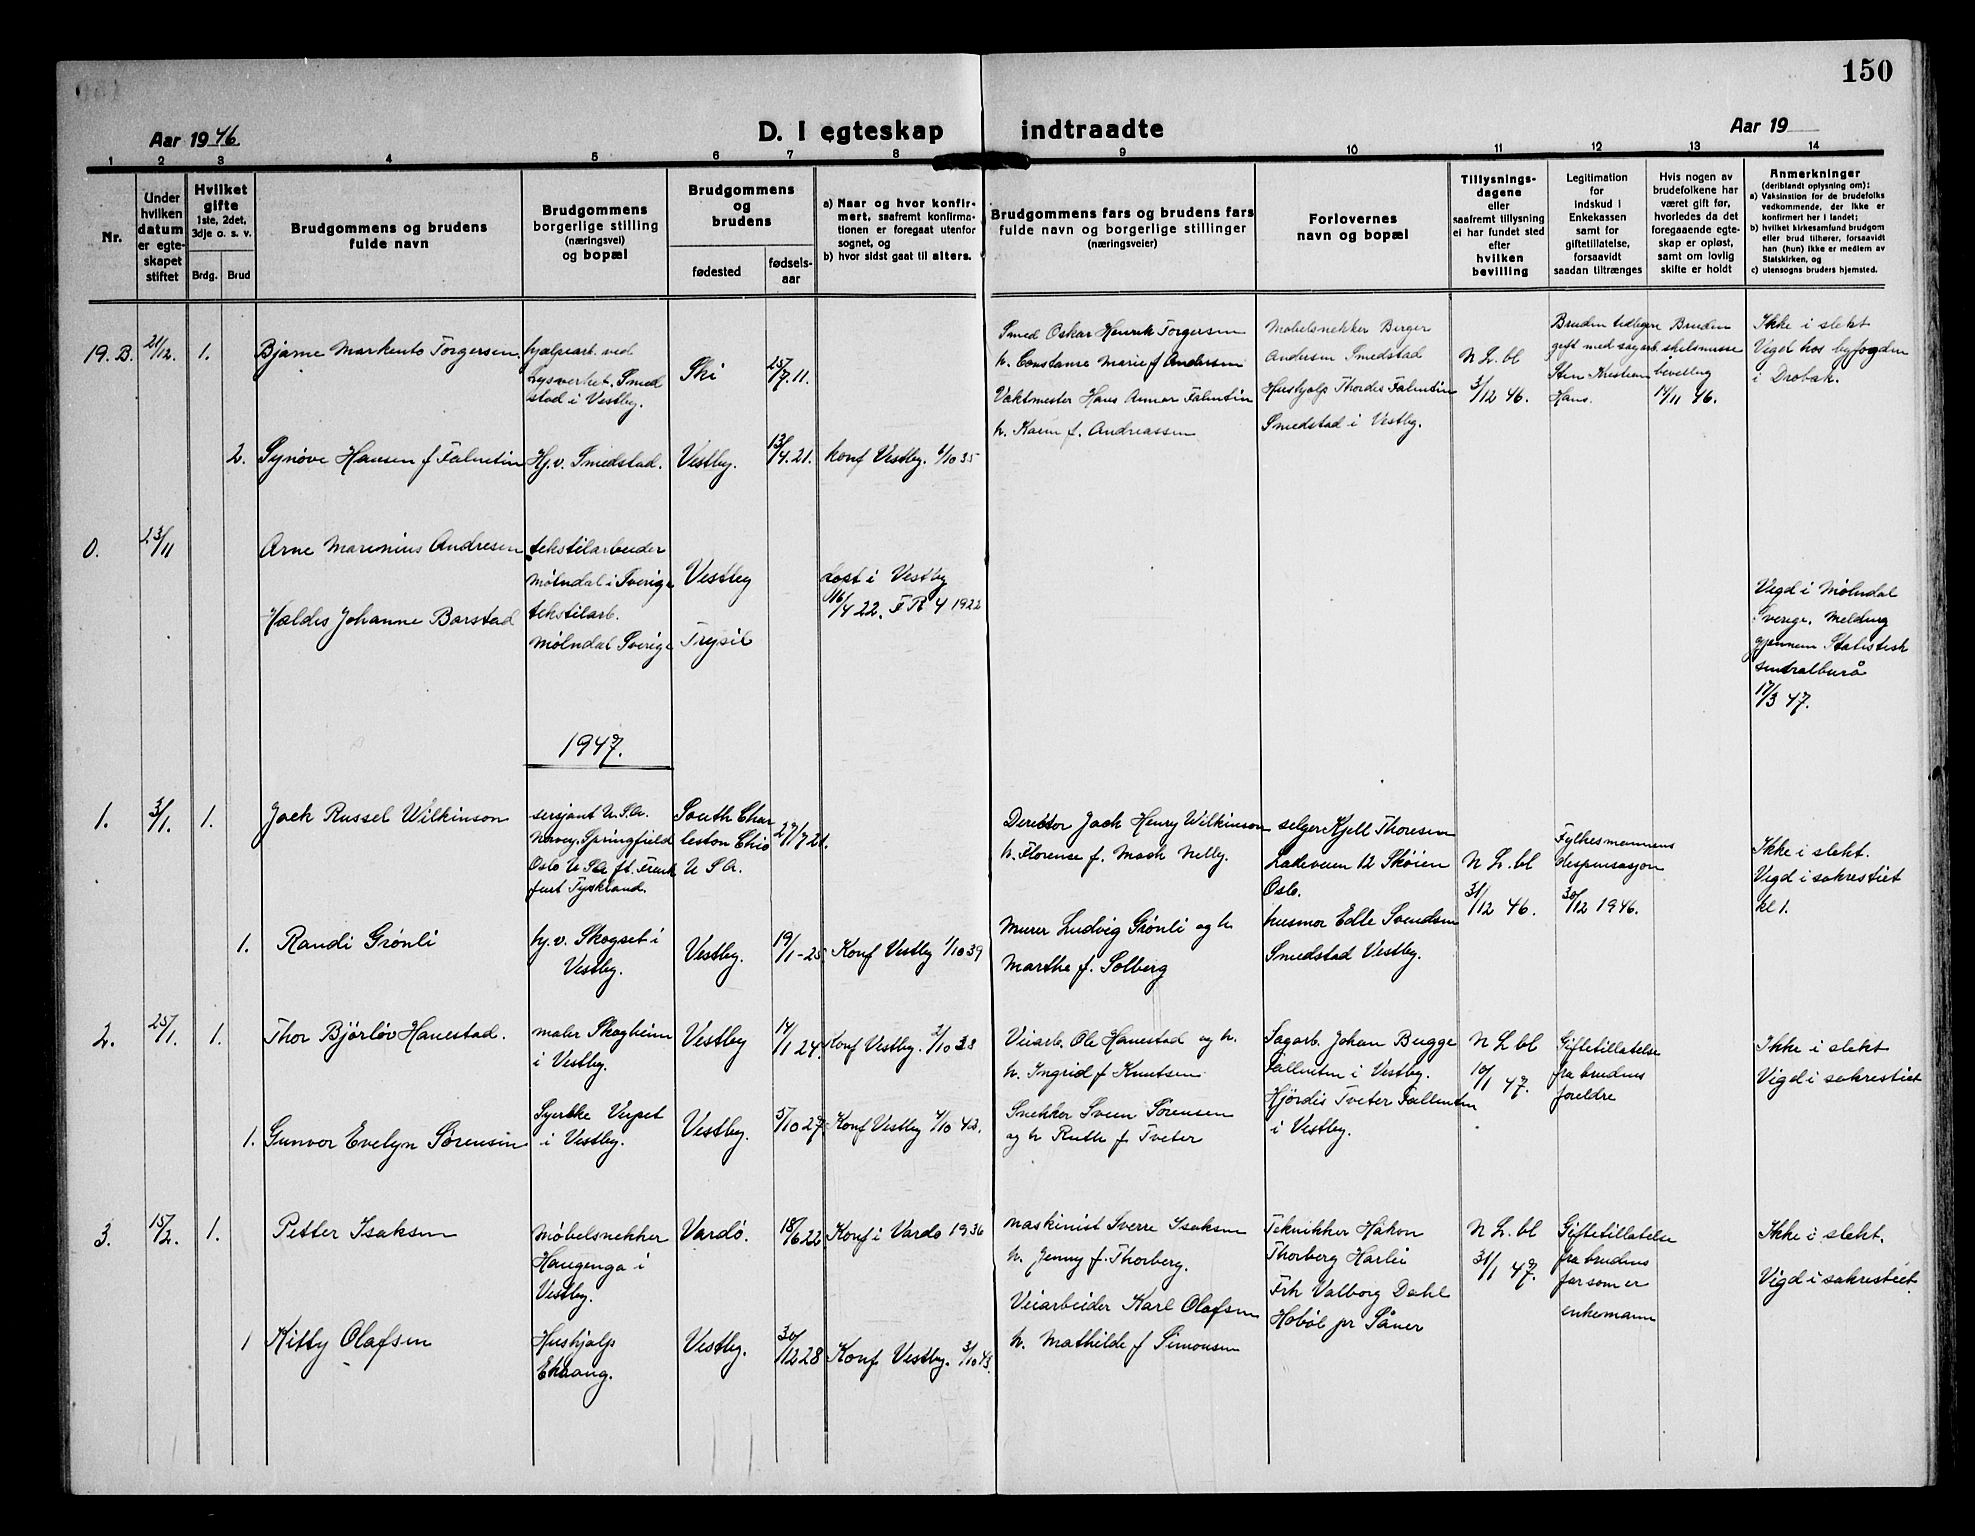 150
Aar 1946
D. I egteskap indtraadte
Aar 19
1 2 3 4 5 6 7 8 9 10 11 12 13 14
Nr.
Under
hvilken
datum
er egte-
skapet
stiftet
Hvilket
gifte
1ste, 2det,
3dje o. s. v.
Brdg. Brud
Brudgommens og brudens
fulde navn
Brudgommens
borgerlige stilling
(næringsvei)
og bopæl
Brudgommens
og
brudens
fødested
fødsels-
aar
a) Naar og hvor konfir-
mert, saafremt konfirma-
tionen er foregaat utenfor
sognet, og
b) hvor sidst gaat til alters.
Brudgommens fars og brudens fars
fulde navn og borgerlige stillinger
(næringsveier)
Forlovernes
navn og bopæl
Tillysnings-
dagene
eller
saafremt tillysning
ei har fundet sted
efter
hvilken
bevilling
Legitimation
for
indskud i
Enkekassen
samt for
giftetillatelse,
forsaavidt
saadan tiltrænges
Hvis nogen av
brudefolkene har
været gift før,
hvorledes da det
foregaaende egte-
skap er opløst,
samt om lovlig
skifte er holdt
Anmerkninger
(deriblandt oplysning om):
a) Vaksination for de brudefolks
vedkommende, der ikke er
konfirmert her i landet;
b) hvilket kirkesamfund brudgom
eller brud tilhører, forsaavidt
han (hun) ikke er medlem av
Statskirken, og
c) utensogns bruders hjemsted.
19. B. 21/12. 1. Bjarne Markento Torgersen
hjælpearb. ved
Lysverket. Smed
stad i Vestby.
Ski
25/7. 11.
Smed Oskar Henrik Torgersen
h. Constanse Marie f Andersen
Vaktmester Hans Anmar Falentin
h. Karen f. Andreassen
Møbelsnekker Berger
Andersen Smedstad
Hushjalp Thordis Falentin
Smedstad i Vestby.
N L. bl
3/12 46.
Bruden tidligere
gift med sagarb.
Sten Kristian
Hans.
Bruden
skilsmisse
bevilling
14/11 46.
Ikke i slekt
Viget hos byfogden
i Drøbak.
2. Synøve Hansen f Falentin
Hj. v. Smedstad.
Vestby.
13/4. 21.
konf Vestby. 6/10 35
0. 23/11
Arne Marinius Andresen
tekstilarbeider
Mølndal i Sverige
Vestby
døpt i Vestby
16/4 22. F R 4 1922
Haldis Johanne Barstad
tekstilarb.
Mølndal Sverige
Trysil
Vigd i Mølndal
Sverige. Melding
gjennem Statistisk
sentralburå
17/3 47.
1947.
1. 3/1. 1. Jack Russel Wilkinson
sersjant U.S.A.
Navey. Springfield
Oslo U S A ft. Frank
furt Tyskland.
South Char
leston Ohio
U S A.
27/7 21.
Derektor Jack Henry Wilkinson
h. Florense f. Mack Nelly.
selger Kjell Thoresen
Ladeveien 12 Skøien
Oslo.
N L. bl
31/12 46.
Fylkesmannens
dispensasjon
30/12 1946.
Ikke i slekt.
Vigd i sakrestiet
kl 1.
1. Randi Grønli
hj. v. Skogset i
Vestby.
Vestby.
19/1-25.
Konf Vestby 1/10 39
Murer Ludvig Grønli og h.
Marthe f. Solberg
husmor Edle Svendsen
Smedstad Vestby.
2. 25/1. 1. Thor Bjørløv Hanestad.
maler Skogheim
i Vestby.
Vestby
14/1 24.
Konf Vestby. 2/10 38
Veiarb. Ole Hanestad og h.
h. Ingrid f Knutsen
Sagarb. Johan Bugge
Fallentin i Vestby.
Hjørdis Tveter Fallentin
i Vestby.
N L bl
10/1 47.
Giftetillatelse
fra brudens
foreldre
Ikke i slekt
Vigd i sakrestiet
1. Gunvor Evelyn Sørensen
Syerske Verpet
i Vestby.
Vestby.
5/10 27
Konf Vestby 4/10 42.
Snekker Svein Sørensen
og h Ruth f. Tveter
3. 15/2. 1. Petter Isaksen
Møbelsnekker
Haugenga i
Vestby.
Vardø.
18/6 22
Konf i Vardø 1936
Maskinist Sverre Isaksen
h. Jenny f. Thorberg.
Teknikker Håkon
Thorberg Harlei
Frk Valborg Dahl
Hobøl pr Såner
N L. bl
31/1 47.
Giftetillatelse
fra brudens
far som er
enkemann
Ikke i slekt.
Vigd i sakrestiet.
1 Kitty Olafsen
Hushjalp
Ekhaug.
Vestby.
30/12 28
Konf Vestby. 3/10 43.
Veiarbeider Karl Olafsen
h. Mathilde f Simonsen